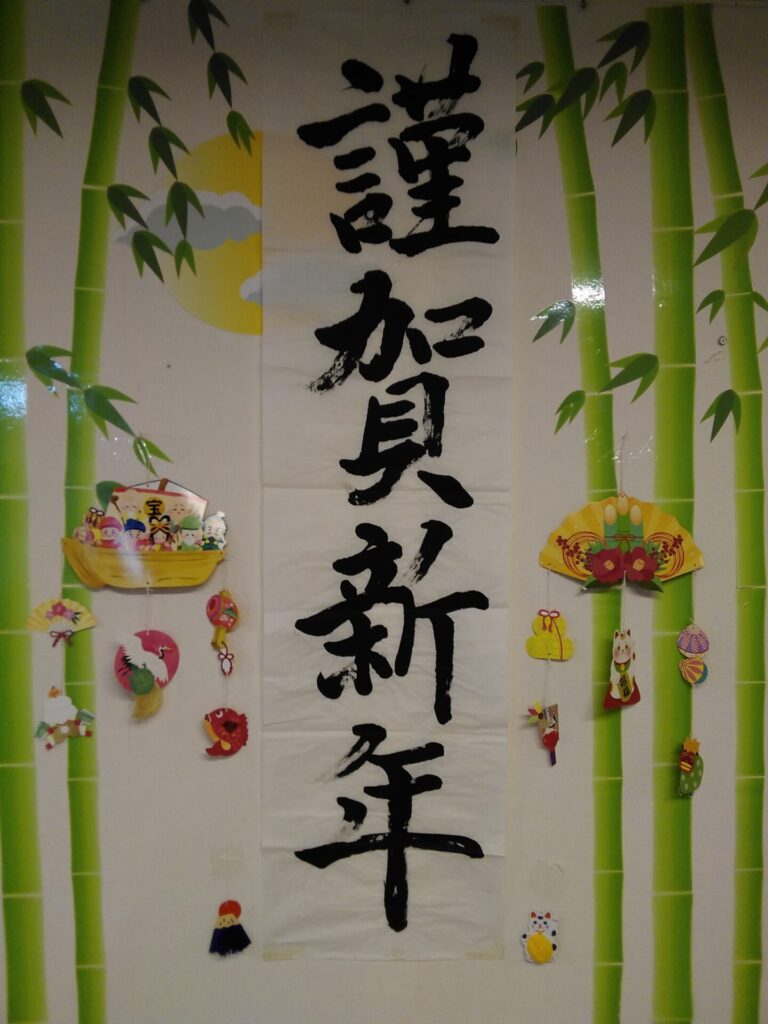 謹賀新年
宝